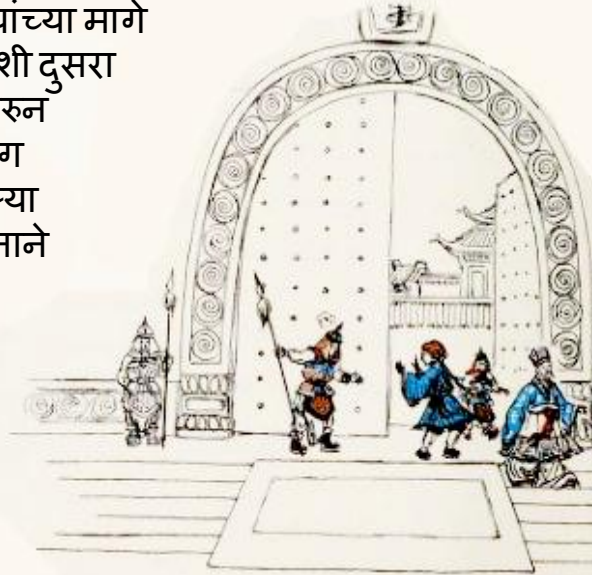 यांच्या मागे
शी दुसरा
रुन
ग
च्या
माने